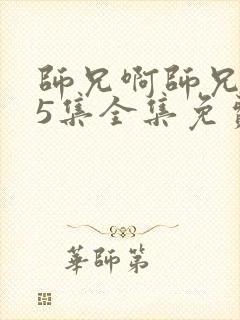 師兄啊師兄
5集全集免
華師第